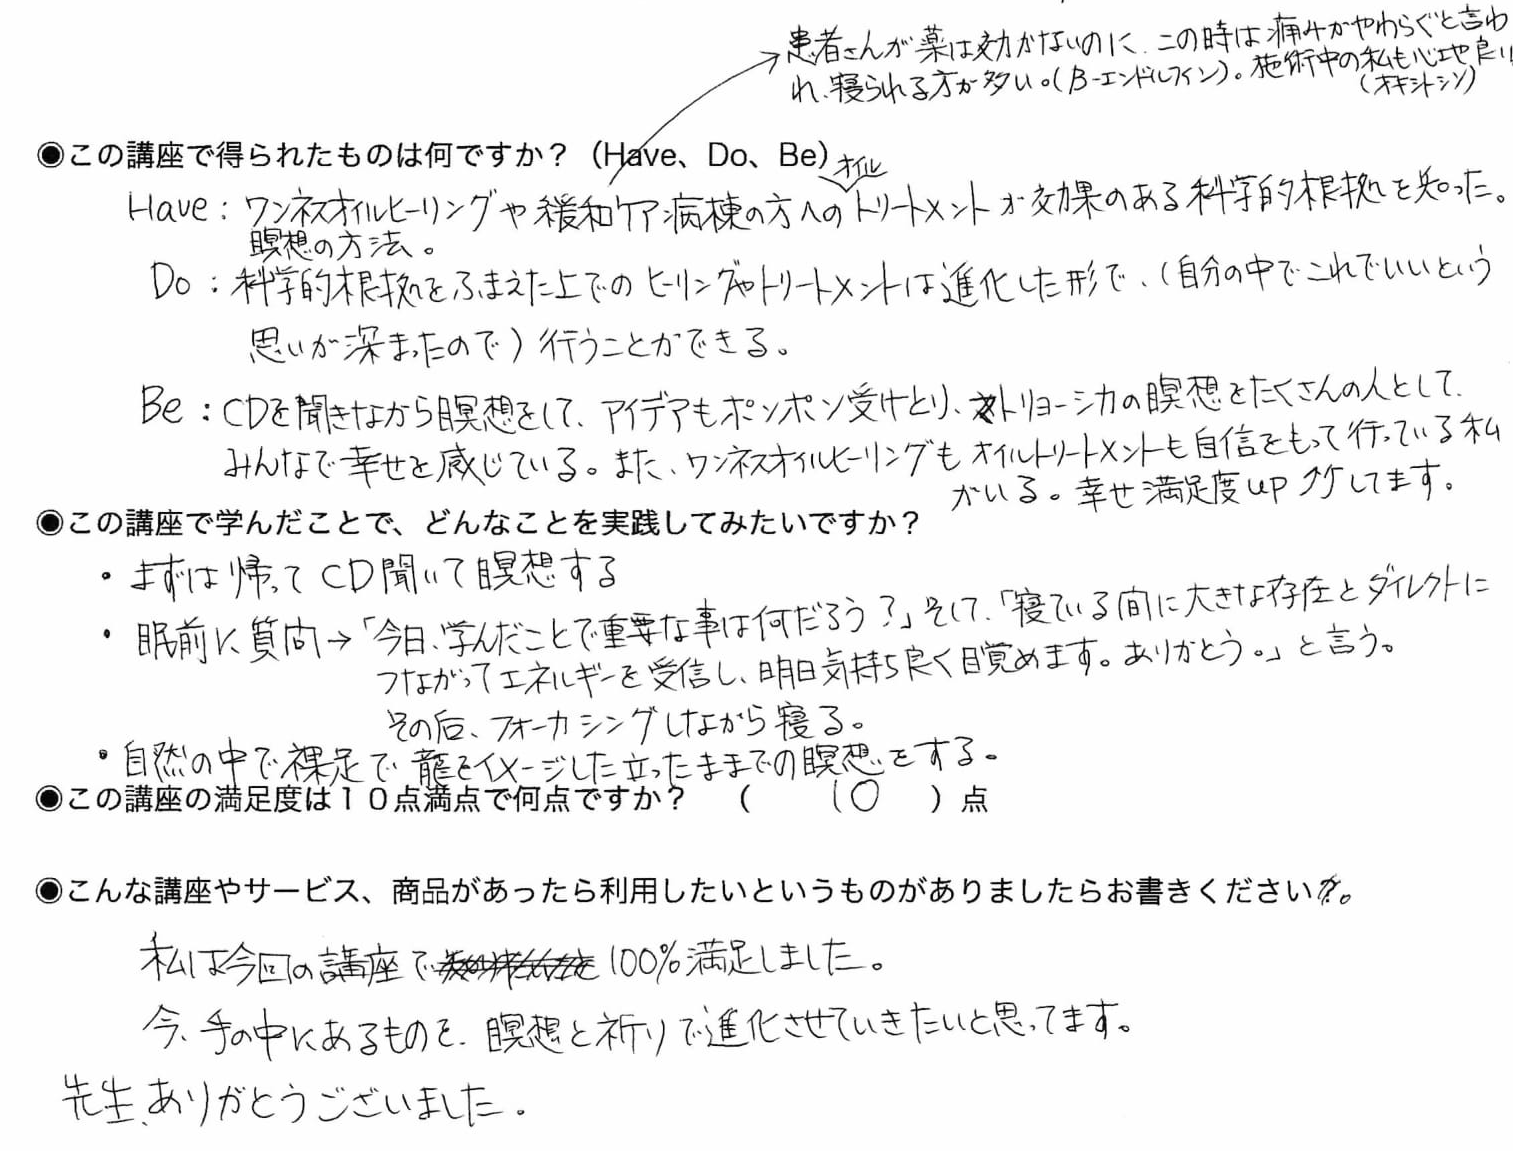 患者さんが薬は効かないのに、この時は痛みがやわらぐと言わ
れ、寝られる方が多い。(β-エンドルフィン)。施術中の私も心地良い
(オキシトシン)
◉この講座で得られたものは何ですか？（Have、Do、Be）
オイル
Have：ワンネスオイルヒーリングや緩和ケア病棟の方へのトリートメントが効果のある科学的根拠を知った。
瞑想の方法。
Do：科学的根拠をふまえた上でのヒーリングやトリートメントは進化した形で、(自分の中でこれでいいという
思いが深まったので)行うことができる。
Be：CDを聞きながら瞑想をして、アイデアもポンポン受けとり、マトリョーシカの瞑想をたくさんの人として、
みんなで幸せを感じている。また、ワンネスオイルヒーリングもオイルトリートメントも自信をもって行っている私
がいる。幸せ満足度up↗↗してます。
◉この講座で学んだことで、どんなことを実践してみたいですか？
・まずは帰ってCD聞いて瞑想する
・眠前に質問→「今日、学んだことで重要な事は何だろう？」そして、「寝ている間に大きな存在とダイレクトに
つながってエネルギーを受信し、明日気持ち良く目覚めます。ありがとう。」と言う。
その后、フォーカシングしながら寝る。
・自然の中で裸足で龍をイメージした立ったままでの瞑想をする。
◉この講座の満足度は１０点満点で何点ですか？　（　10　）点
◉こんな講座やサービス、商品があったら利用したいというものがありましたらお書きください。
私は今回の講座で100%満足しました。
今、手の中にあるものを、瞑想と祈りで進化させていきたいと思ってます。
先生、ありがとうございました。